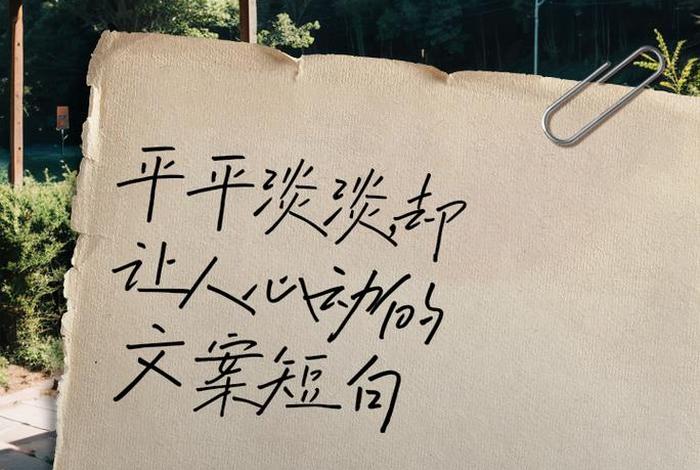 平平淡淡却
让人心动的
文案短句